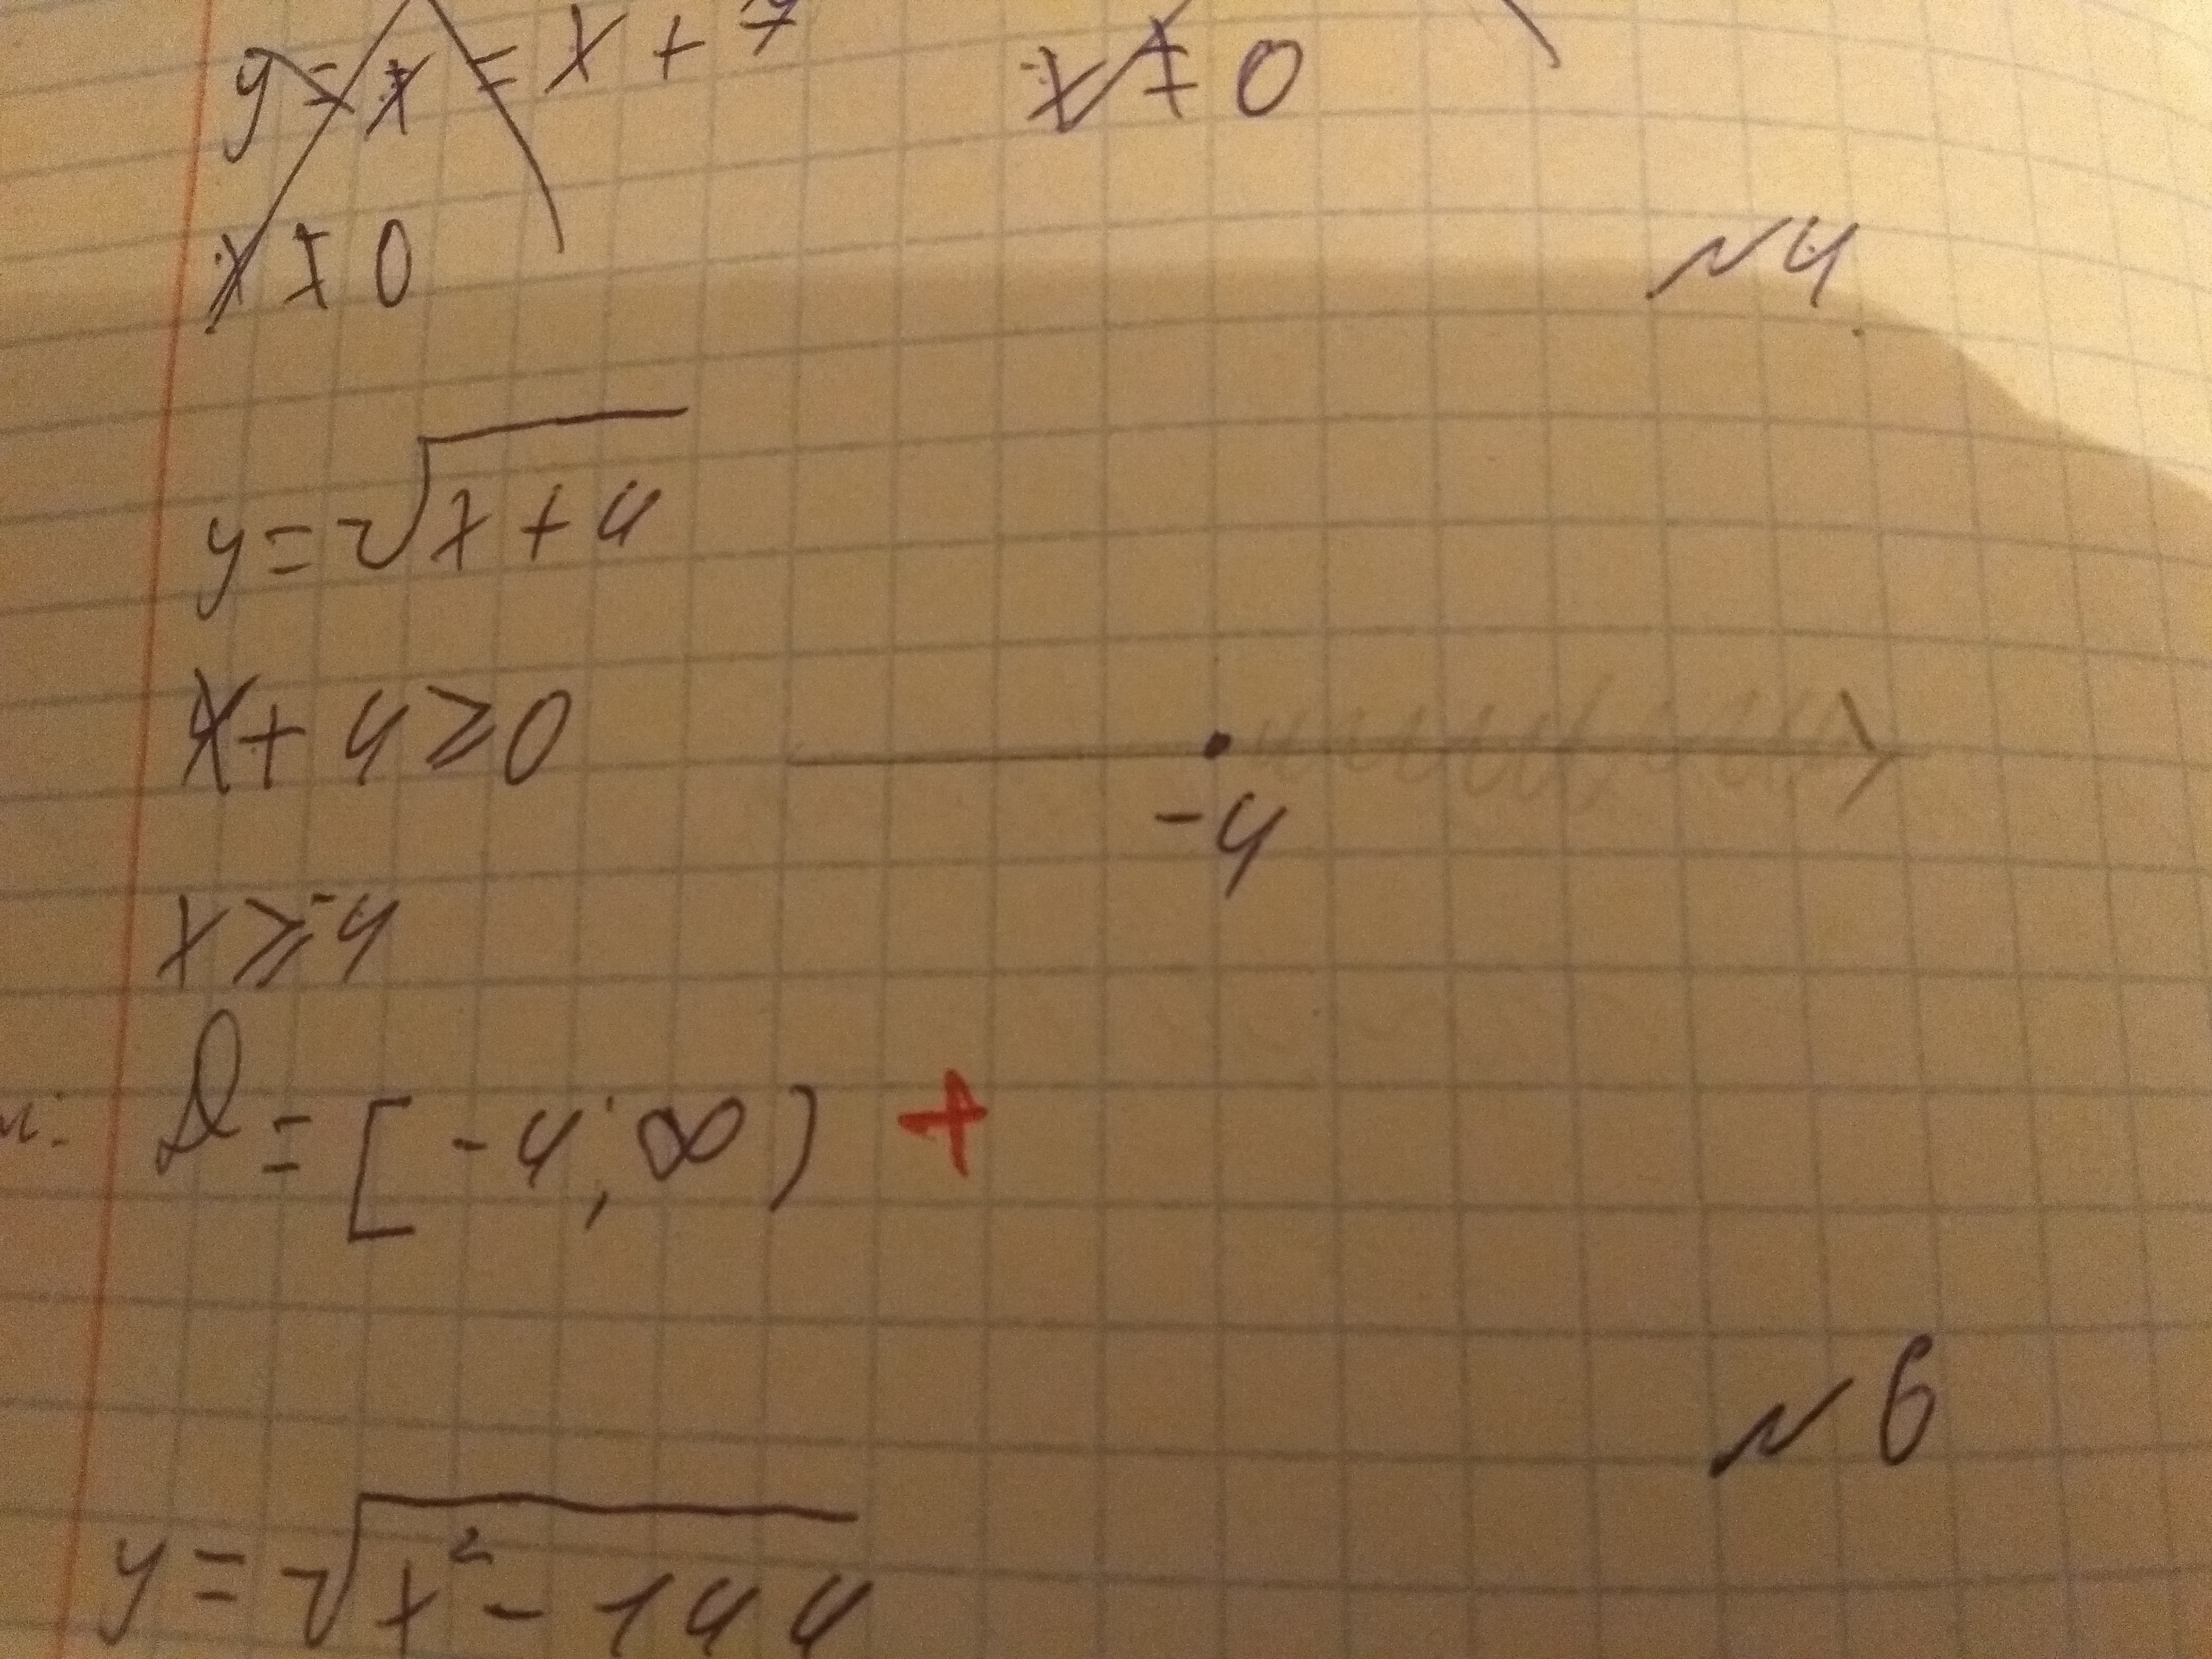 y = x = x + 7
x ≠ 0
x ≠ 0
№4
y = √x + 4
x + 4 ≥ 0
-4
x ≥ -4
D = [-4; ∞) +
№6
y = √x² - 144